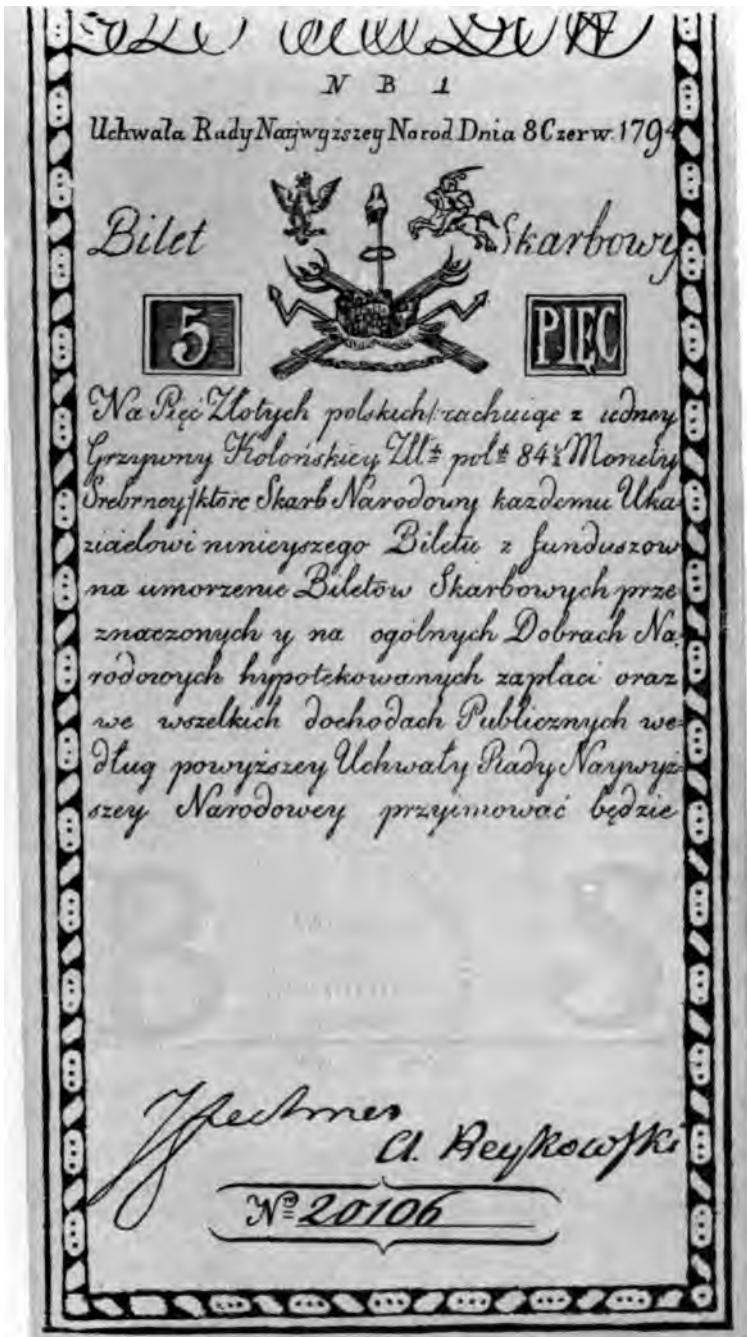 N B 1
Uchwała Rady Naywyzszey Narod Dnia 8 Czerw. 1794
Bilet Skarbowy
5 PIĘC
Na Pięć Złotych polskich /: rachuiąc z iedney
Grzywny Kolońskiey Złł: pol: 84½ Monety
Srebrney / ktore Skarb Narodowy kazdemu Uka
ziciełowi ninieyszego Biletu z funduszow
na umorzenie Biletów Skarbowych prze
znaczonych y na ogólnych Dobrach Na
rodowych hypotekowanych zapłaci oraz
we wszelkich dochodach Publicznych we
dług powyższey Uchwały Rady Naywyż
szey Narodowey przyimować będzie
B S
A. Reykowski
No 20106